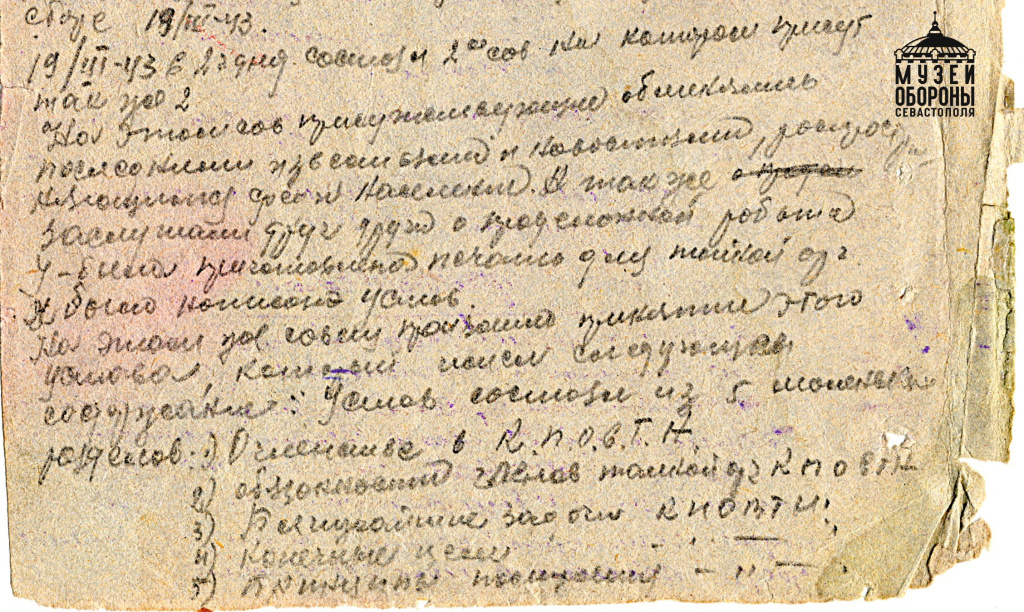 сборе 19/III-43.
19/III-43 в 2 з дня состоял 2ое сов на котором присут
так же 2
На этом сов присутствующие обменялись
последними известиями и новостями, распрост
няющимися среди населения. А так же
заслушали друг друга о проделанной работе
У- была приготовлена печать для тайной орг.
И было написано устав.
На этом же совещ произошло принятие этого
устава, который имел следующее
содержание: Устав состоял из 5 маленьких
разделов. 1) О членстве в К.П.О.В.Т.Н
2) обязанности членов тайной орг К П О В Т Н
3) Ближайшие задачи К П О В Т Н.
4) Конечные цели - " -
5) Принципы построения - " -
МУЗЕЙ
ОБОРОНЫ
СЕВАСТОПОЛЯ